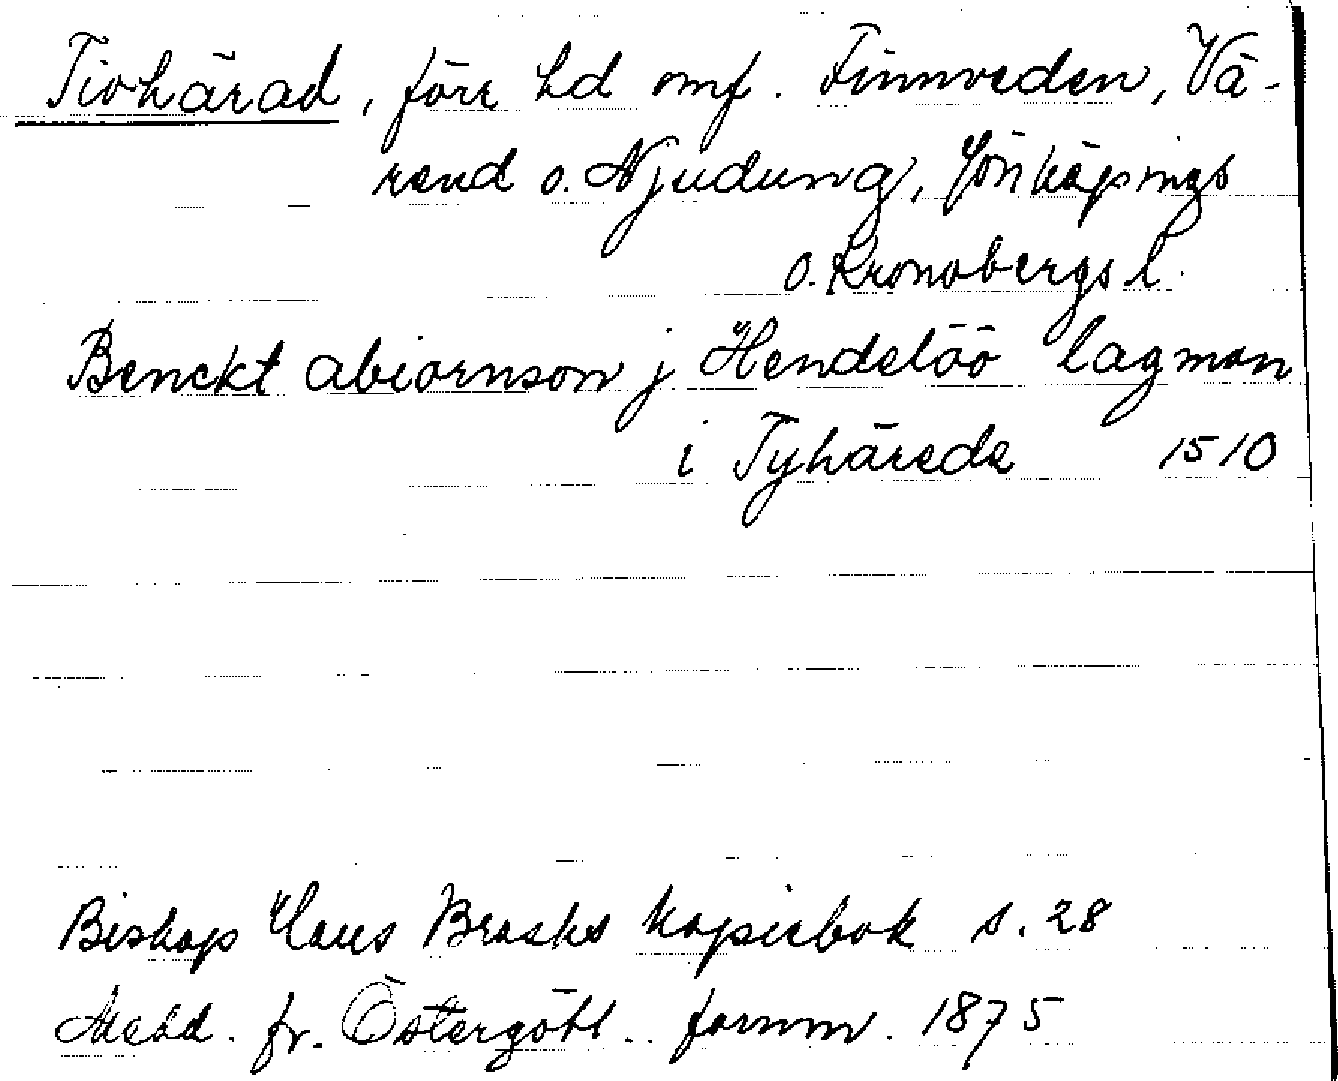 Tiohärad, förr hd omf. Finnveden, Vä-
rend o. Njudung, Jönköpings
o. Kronobergs l.
Benckt abiornson j Hendelöö lagman
i Tyhärade 1510
Biskop Hans Brasks kopiebok s. 28
Medd. fr. Östergötl. fornm. 1875